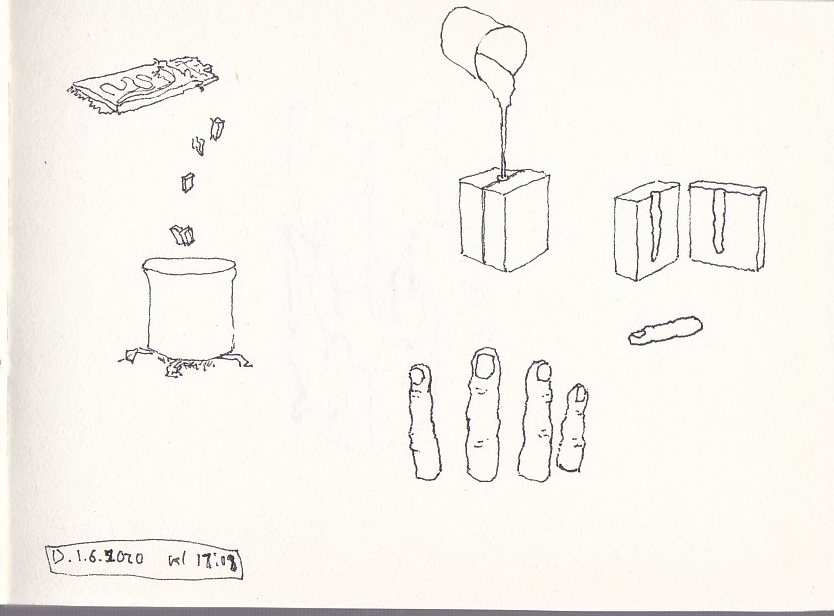 D.1.6.2020 kl 17:08